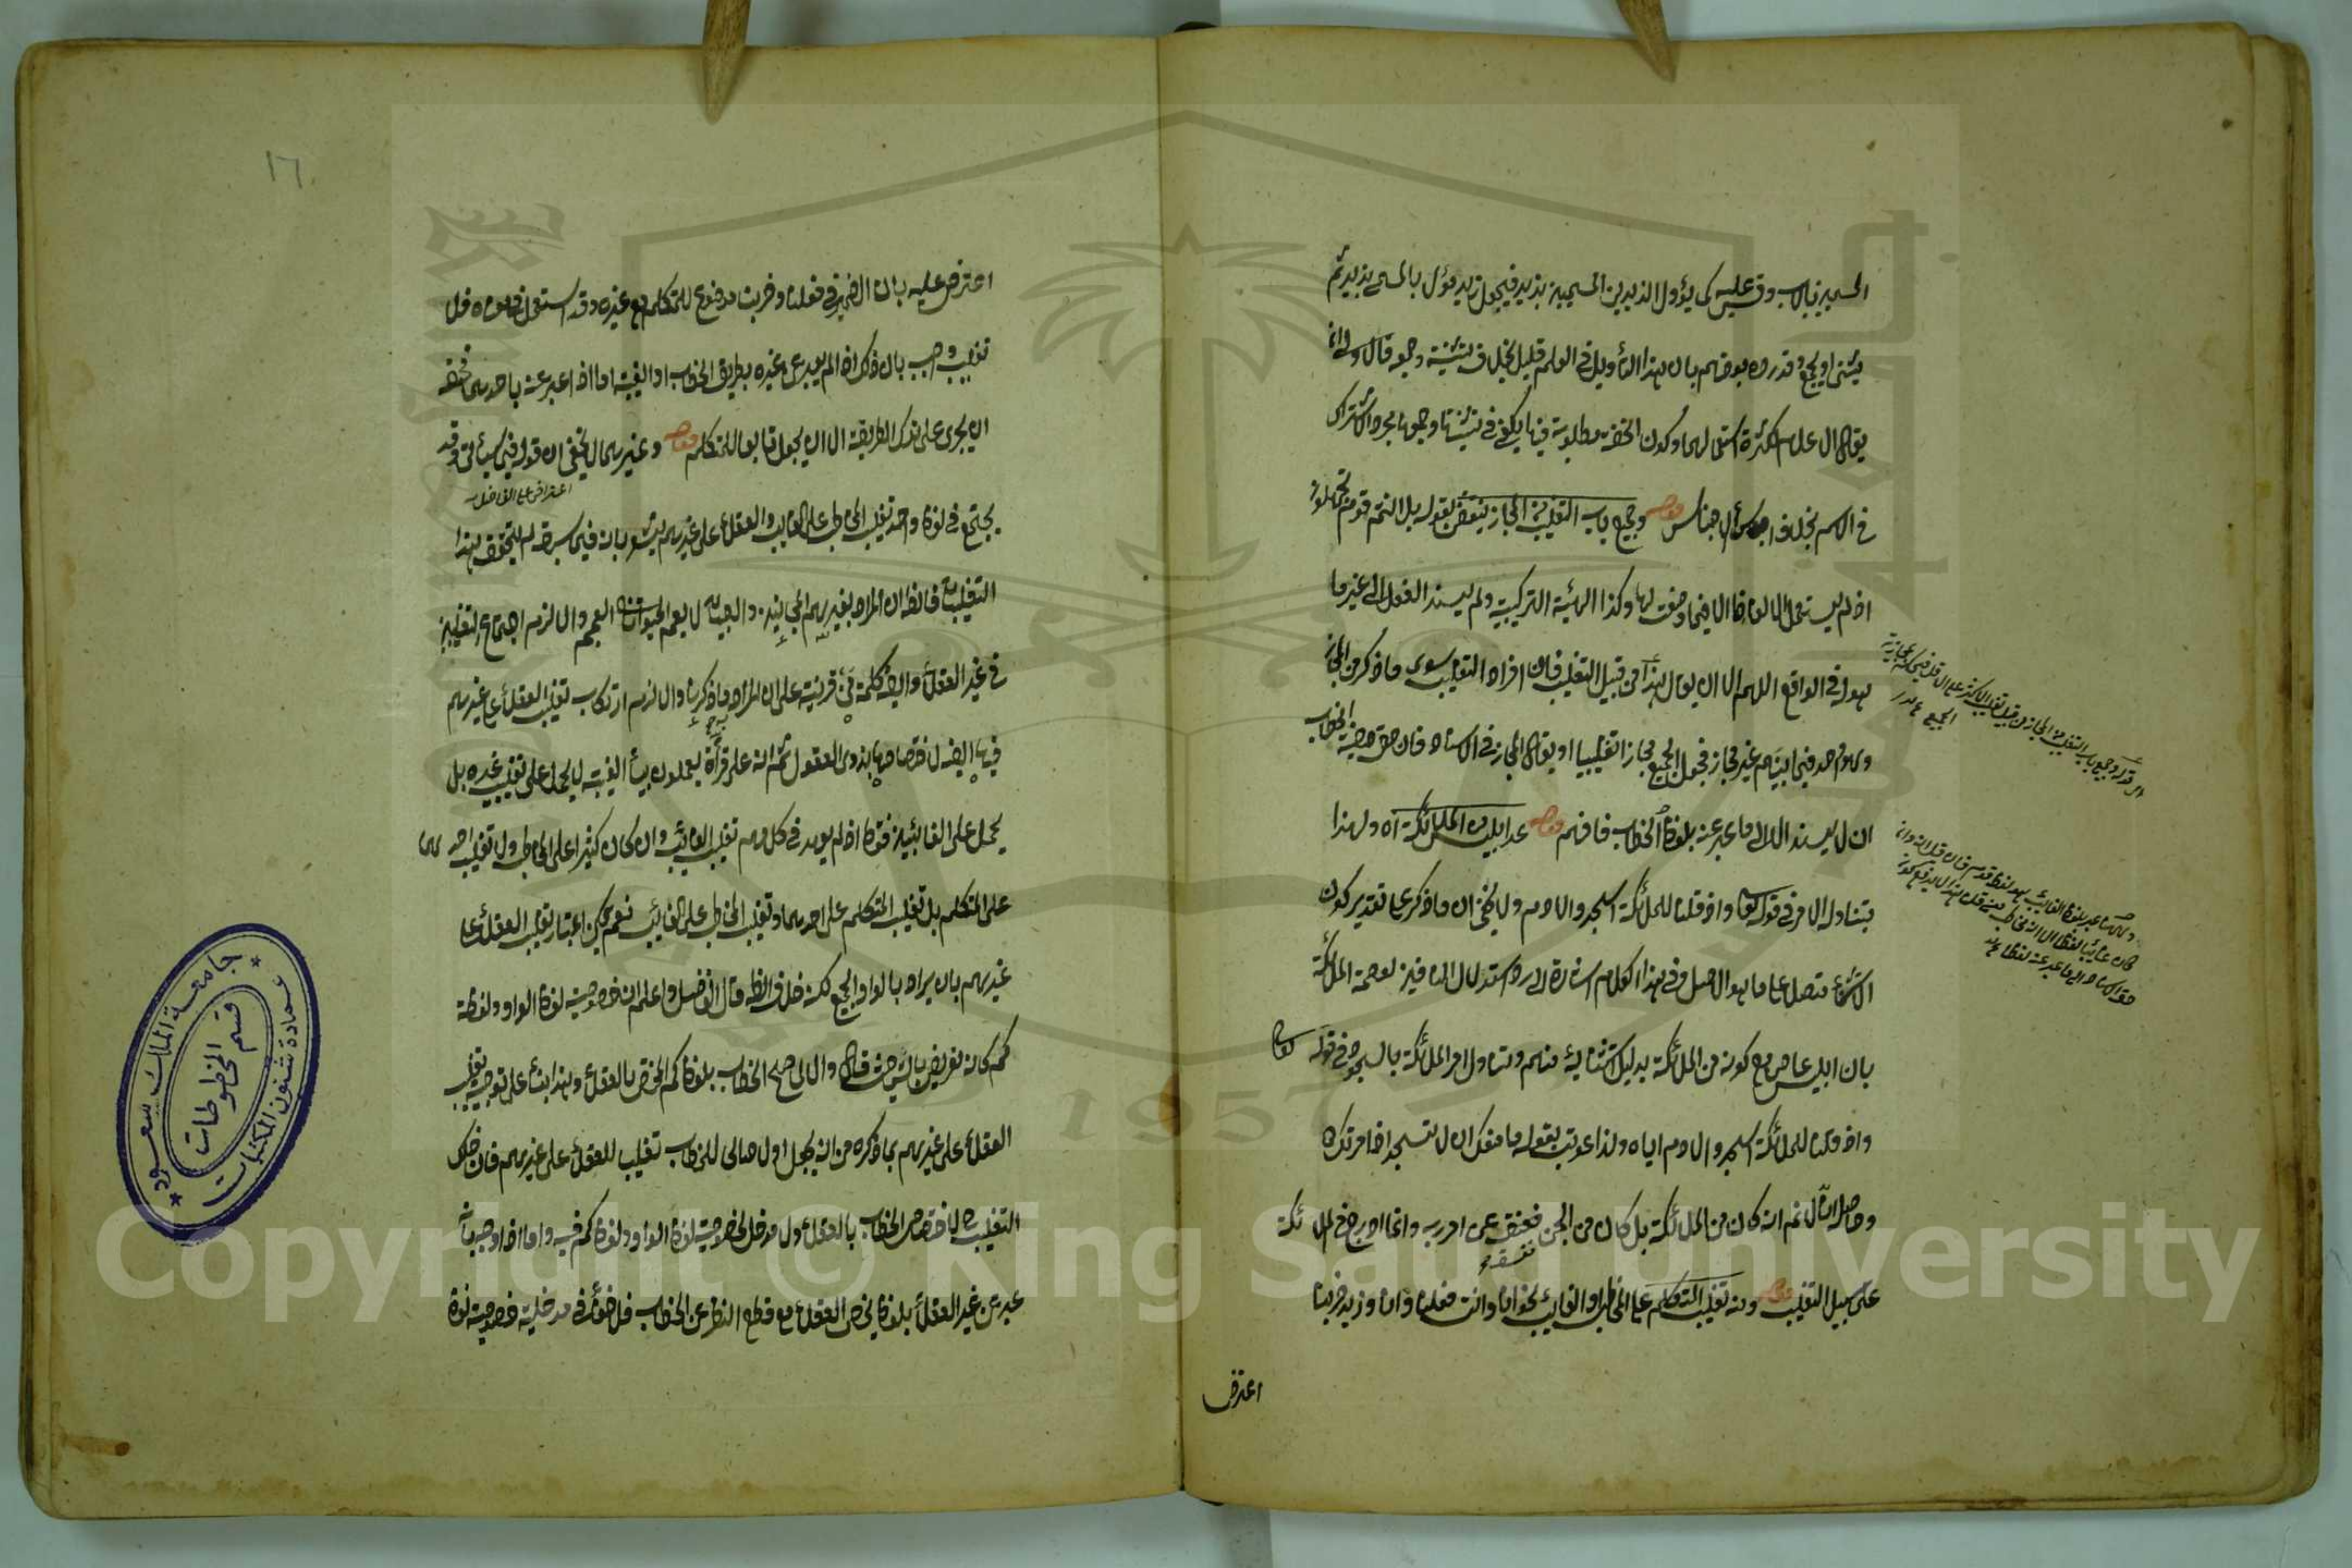 المسميين بالاب وقس عليه كما يؤول الزيدين المسميين بزيد فيجعل زيد مؤل بالمسمى بزيد ثم
يثنى او يجمع وقد رده بعضهم بان هذا التأويل في العلم قليل بخلاف تثنية وجمعه قال ولى
يقال العلم لكثرة استعمالهما وكون الخفة مطلوبة فيها يكفي في تثنيتها وجمعها مجرد الاشتراك
في الاسم بخلاف اسماء الاجناس قوله وجميع باب التغليب من المجاز ينتقض بقوله بل انتم قوم تجهلون
اذ لم يستعمل الالفاظ الا فيما وضعت لها وكذا الهيئة التركيبية ولم يسند الفعل الى غير ما
هو له في الواقع اللهم الا ان يقال هذا من قبيل التغليب فان افراد التغليب سوى ما ذكر من المجاز
واحد فيما بينهم غير مجاز فجعل الجميع مجازا تغليبيا او يقال المجاز في الاسناد فان حق صيغة الخطاب
ان لا يسند الا الى ما عبر عنه بلفظ الخطاب فافهم قوله عد ابليس من الملائكة آه ولهذا
يتناوله الامر في قوله تعالى واذ قلنا للملائكة اسجدوا لادم ولا يخفى ان ما ذكر على تقدير كون
الاستثناء متصلا على ما هو الاصل وفي هذا الكلام اشارة الى رد استدلال النافين لعصمة الملائكة
بان ابليس عاص مع كونه من الملائكة بدليل استثنائه منهم وتناول امر الملائكة بالسجود في قوله تعالى
واذ قلنا للملائكة اسجدوا لادم اياه ولذا عوتب بقوله ما منعك ان لا تسجد اذ امرتك
وحاصله انا لا نم انه كان من الملائكة بل كان من الجن ففسق عن امر ربه وانما ادرج في الملائكة
على سبيل التغليب قوله ومنه تغليب المتكلم على المخاطب او الغائب نحو انا وانت فعلنا وانا وزيد ضربنا
اعترض
١٦
اعترض عليه بان الضمير في فعلنا وضربنا موضوع للمتكلم مع غيره وقد استعمل في معناه فلا
تغليب واجيب بان ذلك اذا لم يعبر عن غيره بطريق الخطاب او الغيبة اما اذا عبر عنه باحدهما فحقه
ان يجرى على تلك الطريقة الا ان يجعل تابعا للمتكلم قوله وغيرهما لا يخفى ان قوله فيما سيأتي وقد
اعتراض على الفاضل
يجتمع في لفظ واحد تغليب المخاطب على الغائب والعقلاء على غيرهم يشعر بان فيما سبق لم يتحقق هذا
التغليبان فالظ ان المراد بغيرهم المجانين والبهائم لا يعم الحيوانات العجم والا لزم اجتماع التغليبين
في غير العقلاء وايضا كلمة من قرينة على ان المراد ما ذكرنا والا لزم ارتكاب تغليب العقلاء على غيرهم
فيها ايضا لاختصاصها بذوى العقول ثم انه على قراءة يعملون بياء الغيبة لا يحمل على تغليب غيره بل
يحمل على الغائبين فقط اذ لم يعهد في كلامهم تغليب الغائب وان كان كثيرا على المخاطب ولا تغليب احدهما
على المتكلم بل تغليب المتكلم على احدهما وتغليب المخاطب على الغائب نعم يمكن اعتبار تغليب العقلاء على
غيرهم بان يراد بالواو الجميع لكنه خلاف الظ قال الفاضل واعلم ان خصوصية لفظ الواو ولفظة
كم كانه تعريض بالشرح حيث قال والا لما صح الخطاب بلفظ كم المختص بالعقلاء وهذا بناء على توجيه تغليب
العقلاء على غيرهم بما ذكره من انه يجعل اولا صالحا للخطاب تغليبا للعقلاء على غيرهم فان ذلك
التغليب لاختصاص الخطاب بالعقلاء ولا مدخل لخصوصية لفظ الواو ولفظ كم فيه واما اذا وجه بانه
عبر عن غير العقلاء بلفظ يخص العقلاء مع قطع النظر عن الخطاب فلا خفاء في مدخلية خصوصية لفظ
جامعة الملك سعود
عمادة شئون المكتبات
قسم المخطوطات
1957
Copyright © King Saud University